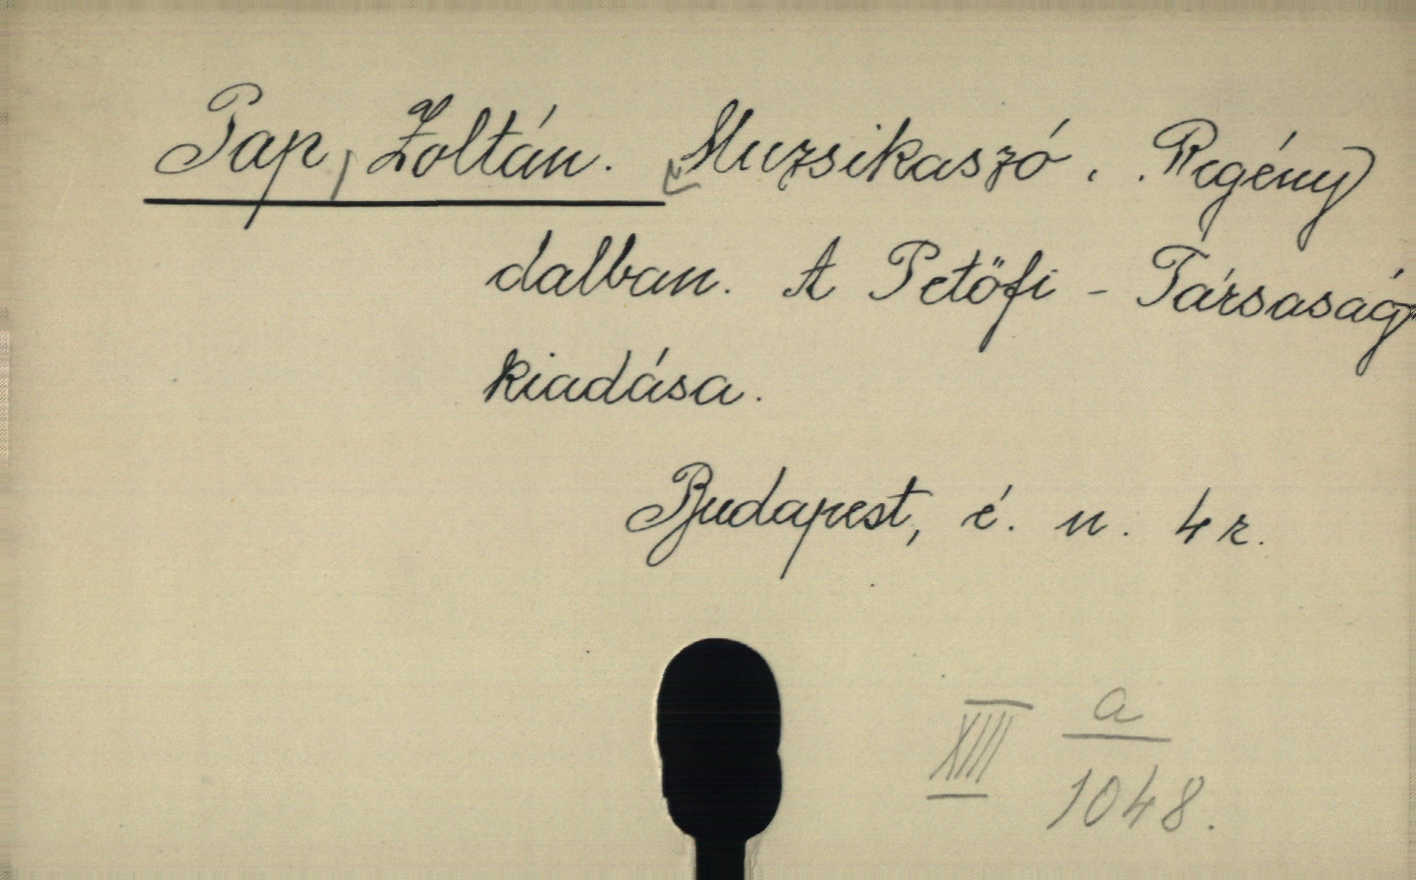 Pap, Zoltán. Muzsikaszó. Regény
dalban. A Petőfi - Társaság
kiadása.
Budapest, é. n. 4 r.
XIII a
1048.